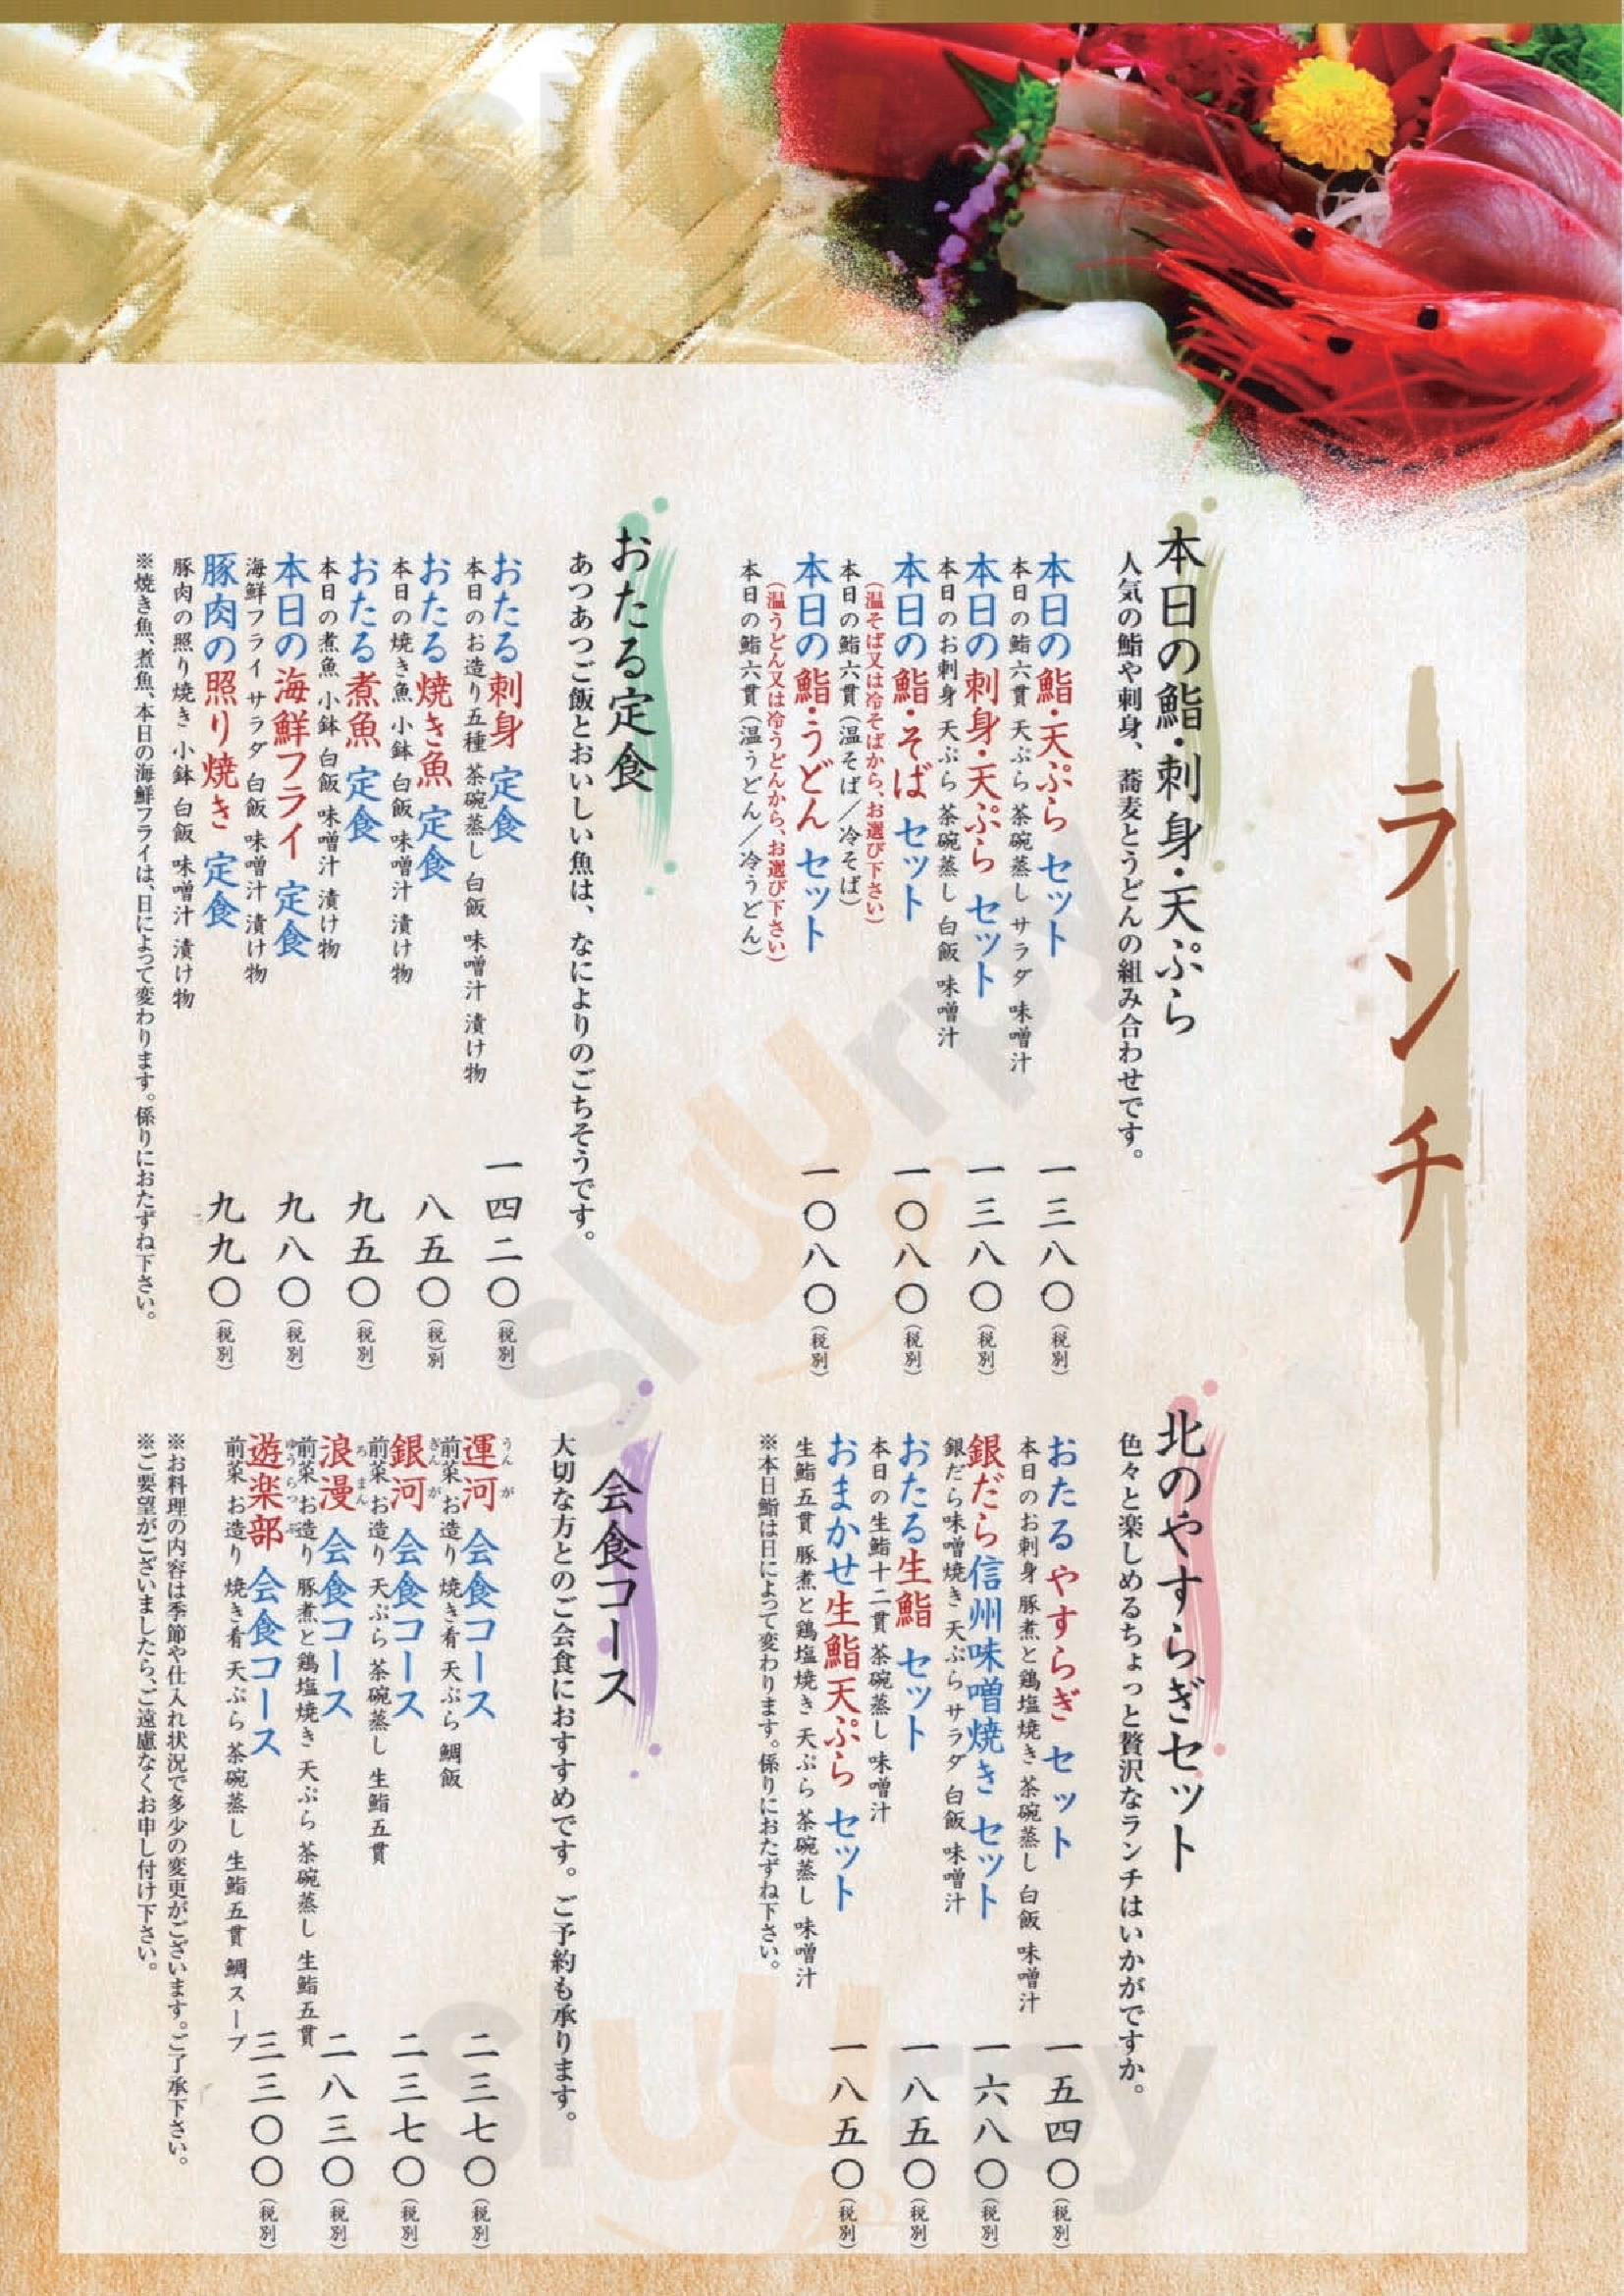 ランチ
本日の鮨・刺身・天ぷら
人気の鮨や刺身、蕎麦とうどんの組み合わせです。
本日の鮨・天ぷら セット 一三八〇(税別)
本日の鮨六貫 天ぷら 茶碗蒸し サラダ 味噌汁
本日の刺身・天ぷら セット 一三八〇(税別)
本日のお刺身 天ぷら 茶碗蒸し 白飯 味噌汁
本日の鮨・そば セット 一〇八〇(税別)
(温そば又は冷そばから、お選び下さい)
本日の鮨六貫(温そば/冷そば)
本日の鮨・うどん セット 一〇八〇(税別)
(温うどん又は冷うどんから、お選び下さい)
本日の鮨六貫(温うどん/冷うどん)
おたる定食
あつあつご飯とおいしい魚は、なによりのごちそうです。
おたる 刺身 定食 一四二〇(税別)
本日のお造り五種 茶碗蒸し 白飯 味噌汁 漬け物
おたる 焼き魚 定食 八五〇(税)別
本日の焼き魚 小鉢 白飯 味噌汁 漬け物
おたる 煮魚 定食 九五〇(税別)
本日の煮魚 小鉢 白飯 味噌汁 漬け物
本日の 海鮮フライ 定食 九八〇(税別)
海鮮フライ サラダ 白飯 味噌汁 漬け物
豚肉の照り焼き 定食 九九〇(税別)
豚肉の照り焼き 小鉢 白飯 味噌汁 漬け物
※焼き魚、煮魚、本日の海鮮フライは、日によって変わります。係りにおたずね下さい。
北のやすらぎセット
色々と楽しめるちょっと贅沢なランチはいかがですか。
おたる やすらぎ セット 一五四〇(税別)
本日のお刺身 豚煮と鶏塩焼き 茶碗蒸し 白飯 味噌汁
銀だら信州味噌焼き セット 一六八〇(税別)
銀だら味噌焼き 天ぷら サラダ 白飯 味噌汁
おたる生鮨 セット 一八五〇(税別)
本日の生鮨十二貫 茶碗蒸し 味噌汁
おまかせ生鮨天ぷら セット 一八五〇(税別)
生鮨五貫 豚煮と鶏塩焼き 天ぷら 茶碗蒸し 味噌汁
※本日鮨は日によって変わります。係りにおたずね下さい。
会食コース
大切な方とのご会食におすすめです。ご予約も承ります。
運河 会食コース 二三七〇(税別)
うんが
前菜 お造り 焼き肴 天ぷら 鯛飯
銀河 会食コース 二三七〇(税別)
ぎんが
前菜 お造り 天ぷら 茶碗蒸し 生鮨五貫
浪漫 会食コース 二八三〇(税別)
ろまん
前菜 お造り 豚煮と鶏塩焼き 天ぷら 茶碗蒸し 生鮨五貫
遊楽部 会食コース 三三〇〇(税別)
前菜 お造り 焼き肴 天ぷら 茶碗蒸し 生鮨五貫 鯛スープ
※お料理の内容は季節や仕入れ状況で多少の変更がございます。ご了承下さい。
※ご要望がございましたら、ご遠慮なくお申し付け下さい。
sluurpy
sluurpy